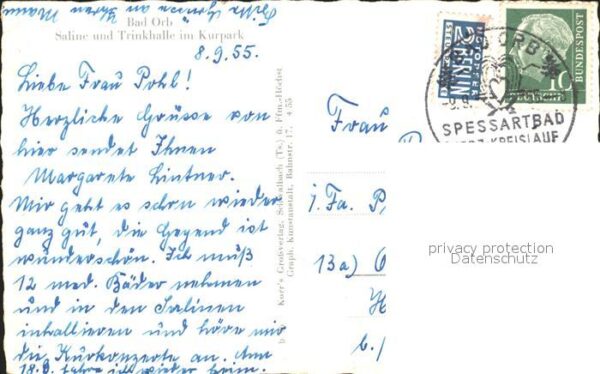 Beste Grüsse an Ihren Mann
Bad Orb
Saline und Trinkhalle im Kurpark
8.9.55.
Liebe Frau Pohl!
Herzliche Grüsse von
hier sendet Ihnen
Margarete Lintner.
Mir geht es schon wieder
ganz gut, die Gegend ist
wunderschön. Ich muß
12 med. Bäder nehmen
und in den Salinen
inhallieren und höre mir
die Kurkonzerte an. Am
18.9. fahre ich wieder heim.
Korr's Großverlag, Schwalbach (Ts.) u. Ffm.-Höchst
Graph. Kunstanstalt, Bahnstr. 17, 4 55
NOTOPFER
2 BERLIN
STEUERMARKE
DEUTSCHE
BUNDESPOST
10
BAD ORB
SPESSARTBAD
HERZ-KREISLAUF
Frau
i. Fa. P
13a)
H
b./
privacy protection
Datenschutz